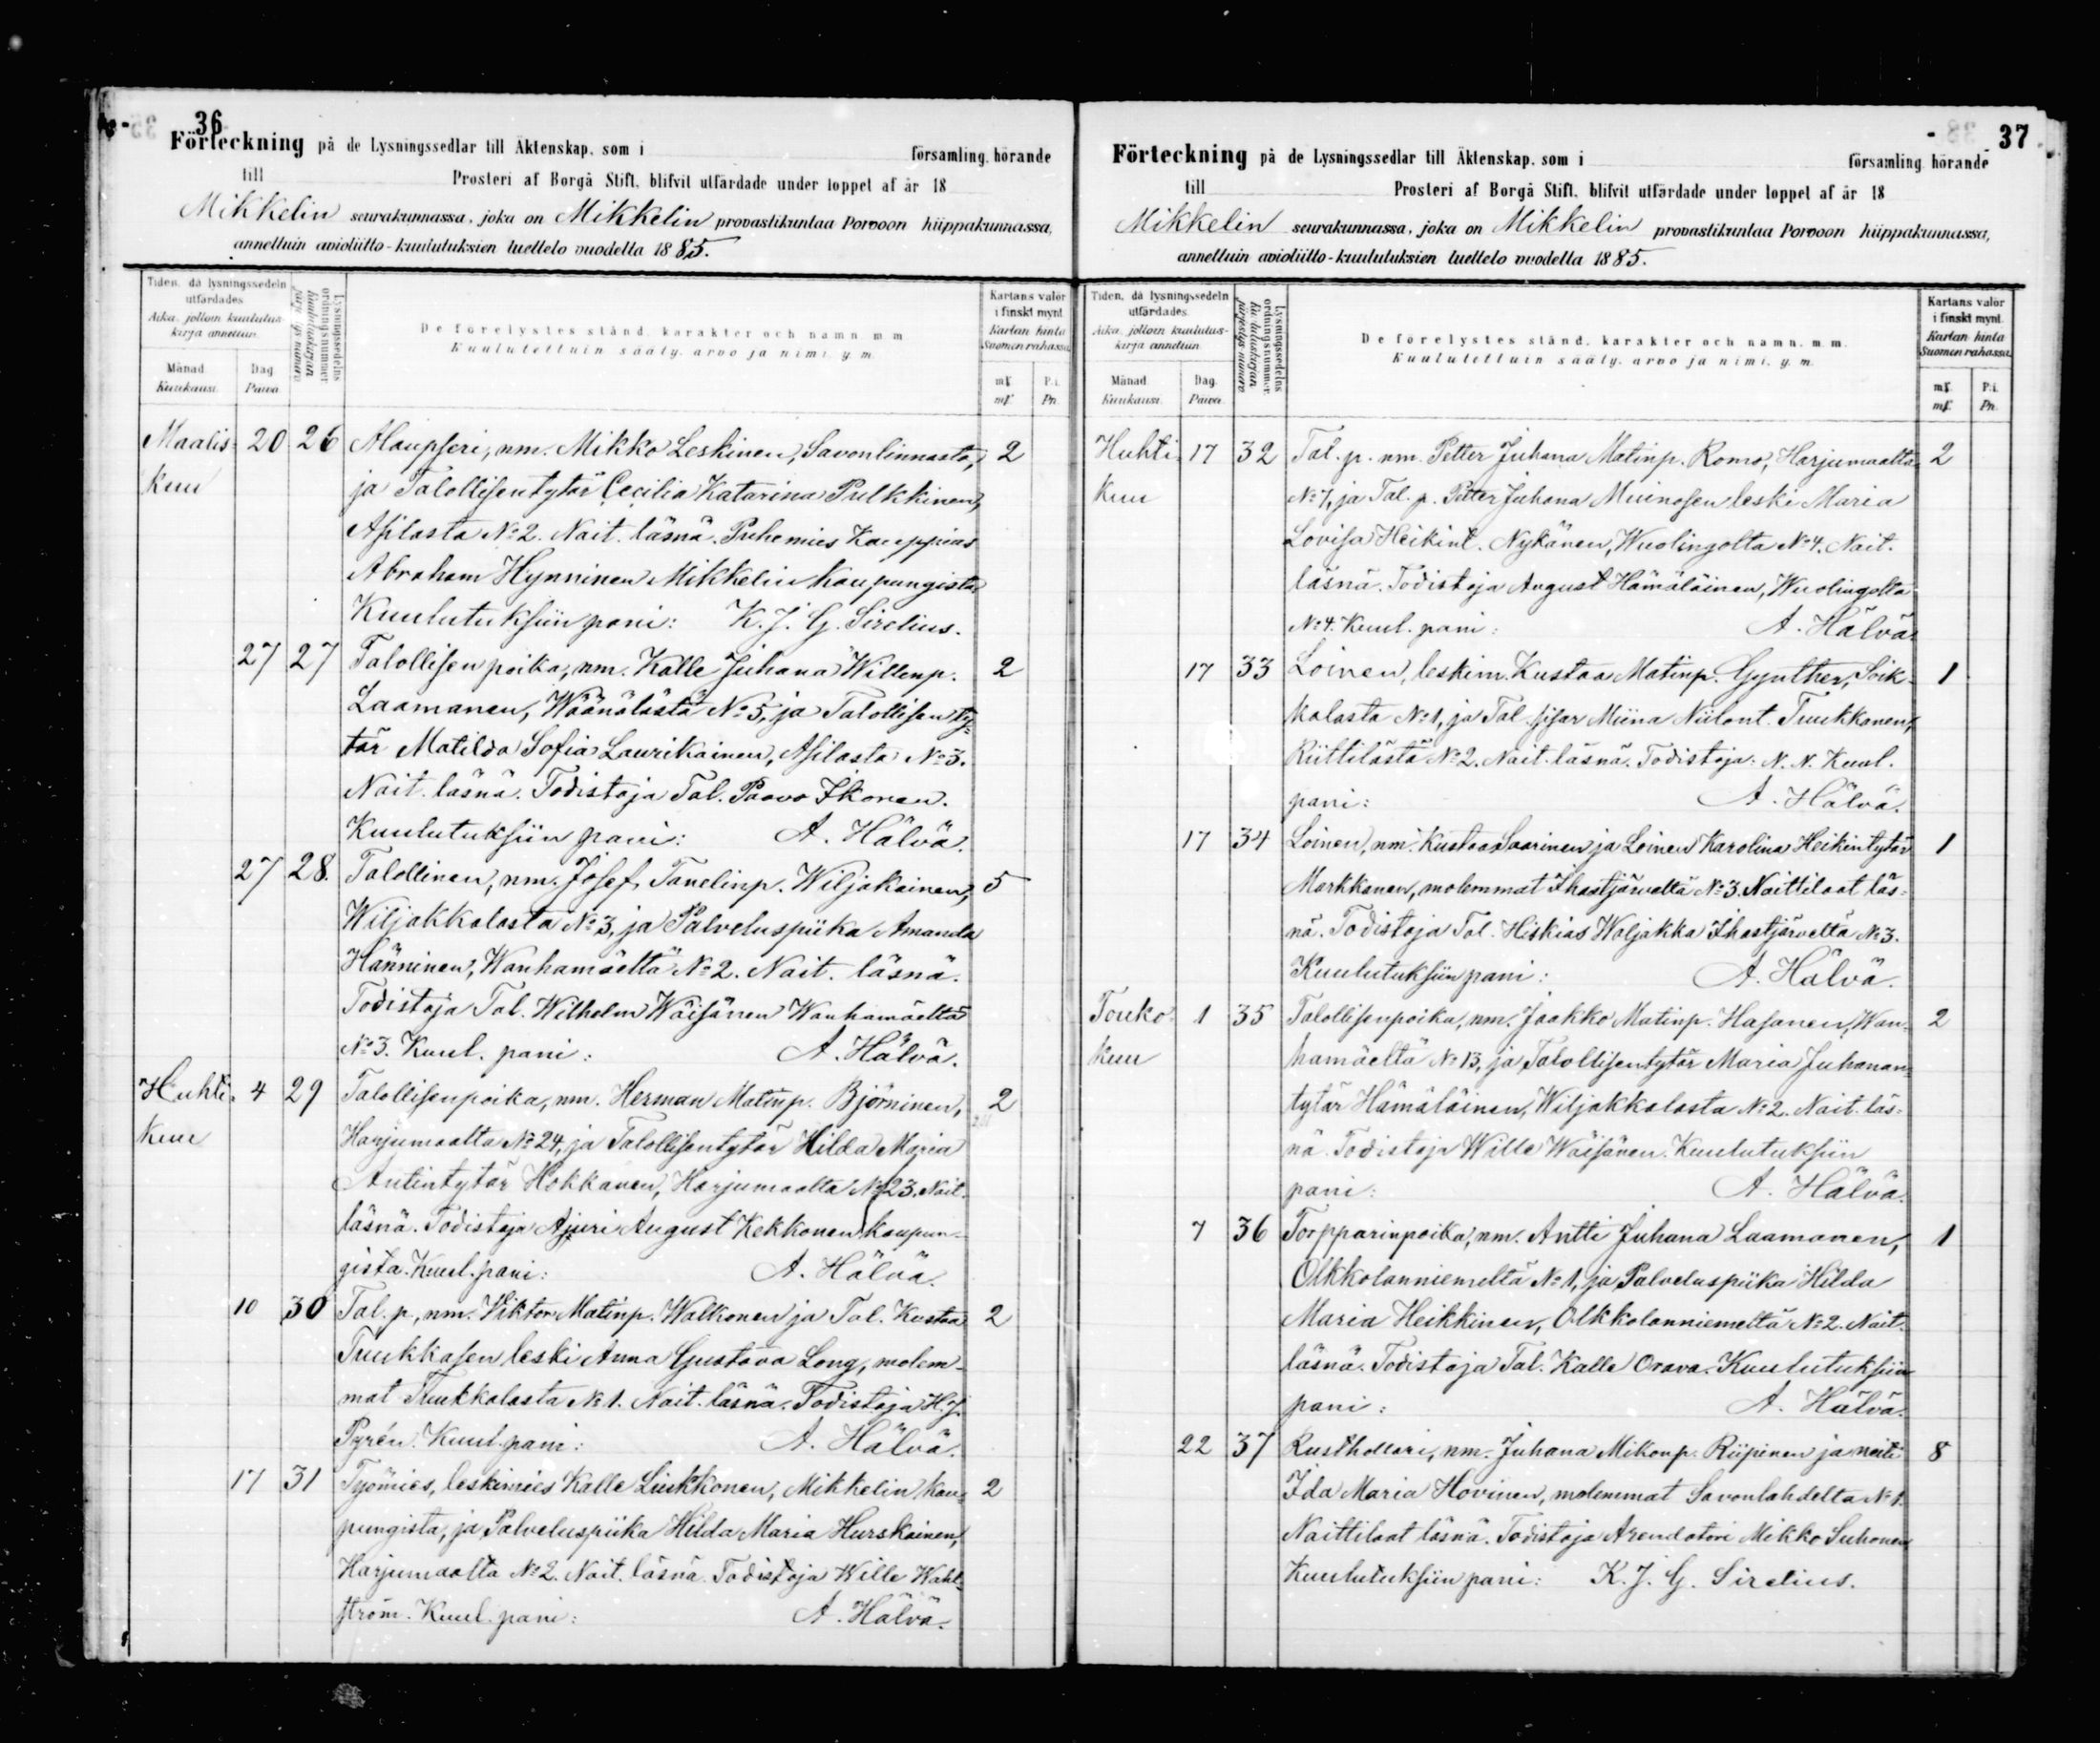 36
Förteckning på de Lysningssedlar till Äktenskap, som i församling, hörande
till Prosteri af Borgå Stift, blifvit utfärdade under loppet af år 18
Mikkelin seurakunnassa, joka on Mikkelin provastikuntaa Porvoon hiippakunnassa,
annettuin avioliitto-kuulutuksien luettelo vuodelta 1885.
Tiden, då lysningssedeln utfärdades
Aika, jolloin kuulutus-kirja annettiin.
Månad Kuukausi.
Dag Päivä
Lysningssedelns ordningsnummer
kuulutuskirjan järjestysnumero
De förelystes stånd, karakter och namn m m
Kuulutettuin sääty, arvo ja nimi, y. m.
Kartans valör i finskt mynt.
Kartan hinta Suomen rahassa
mk p:i.
mk Pn.
Maalis- 20 26 Alaupseri, nm. Mikko Leskinen, Savonlinnasta, 2
kuu ja Talollisentytär Cecilia Katarina Pulkkinen,
Asilasta No 2. Nait. läsnä. Puhemies Kauppias
Abraham Hynninen Mikkelin kaupungista.
Kuulutuksiin pani: K. J. G. Sirelius.
27 27 Talollisen poika, nm. Kalle Juhana Willenp. 2
Laamanen, Wäänälästä No 5, ja Talollisen ty-
tär Matilda Sofia Laurikainen, Asilasta No 3.
Nait. läsnä. Todistaja Tal. Paavo Ikonen.
Kuulutuksiin pani: A. Hälvä.
27 28. Talollinen, nm. Josef Tanelinp. Wiljakainen, 5
Wiljakkalasta No 3, ja Palveluspiika Amanda
Hänninen, Wanhamäeltä No 2. Nait. läsnä.
Todistaja Tal. Wilhelm Wäisänen Wanhamäeltä
No 3. Kuul. pani: A. Hälvä.
Huhti- 4 29 Talollisenpoika, nm. Herman Matinp. Björninen, 2
kuu Harjumaalta No 24, ja Talollisentytär Hilda Maria
Antintytär Hokkanen, Harjumaalta No 23. Nait.
läsnä. Todistaja Ajuri August Kekkonen kaupun-
gista. Kuul. pani: A. Hälvä.
10 30 Tal. p., nm. Viktor Matinp. Walkonen ja Tal. Kustaa 2
Tuukkasen leski Anna Gustava Long, molem-
mat Tuukkalasta No 1. Nait. läsnä. Todistaja H. J.
Pyrén. Kuul. pani: A. Hälvä.
17 31 Työmies, leskimies Kalle Liukkonen, Mikkelin kau- 2
pungista, ja Palveluspiika Hilda Maria Hurskainen,
Harjumaalta No 2. Nait. läsnä. Todistaja Wille Wahl-
ström. Kuul. pani: A. Hälvä.
37
Förteckning på de Lysningssedlar till Äktenskap, som i församling, hörande
till Prosteri af Borgå Stift, blifvit utfärdade under loppet af år 18
Mikkelin seurakunnassa, joka on Mikkelin provastikuntaa Porvoon hiippakunnassa,
annettuin avioliitto-kuulutuksien luettelo vuodelta 1885.
Tiden, då lysningssedeln utfärdades
Aika, jolloin kuulutus-kirja annettiin
Månad Kuukausi.
Dag. Päivä.
Lysningssedelns ordningsnummer
kuulutuskirjan järjestysnumero
De förelystes stånd, karakter och namn. m. m.
Kuulutettuin sääty, arvo ja nimi, y. m.
Kartans valör i finskt mynt.
Kartan hinta Suomen rahassa.
mk. P:i.
mk. Pn.
Huhti- 17 32 Tal. p. nm. Petter Juhana Matinp. Romo, Harjumaalta 2
kuu No 7, ja Tal. p. Petter Juhana Muinosen leski Maria
Lovisa Heikint. Nykänen, Wuolingolta No 4. Nait.
läsnä. Todistaja August Hämäläinen, Wuolingolta
No 4. Kuul. pani: A. Hälvä.
17 33 Loinen, leskim. Kustaa Matinp. Gynther, Soik- 1
kalasta No 1, ja Tal. sisar Miina Niilont. Tuukkanen,
Riittilästä No 2. Nait. läsnä. Todistaja: N. N. Kuul.
pani: A. Hälvä.
17 34 Loinen, nm. Kustaa Saarinen ja Loinen Karolina Heikintytär 1
Markkanen, molemmat Ihastjärveltä No 3. Naittilaat läs-
nä. Todistaja Tal. Hiskias Waljakka Ihastjärveltä No 3.
Kuulutuksiin pani: A. Hälvä.
Touko- 1 35 Talollisenpoika, nm. Jaakko Matinp. Hasanen, Wan- 2
kuu hamäeltä No 13, ja Talollisentytär Maria Juhanan-
tytär Hämäläinen, Wiljakkalasta No 2. Nait. läs-
nä. Todistaja Wille Wäisänen. Kuulutuksiin
pani: A. Hälvä.
7 36 Torpparinpoika, nm. Antti Juhana Laamanen, 1
Olkkolanniemeltä No 1, ja Palveluspiika Hilda
Maria Heikkinen, Olkkolanniemeltä No 2. Nait.
läsnä. Todistaja Tal. Kalle Orava. Kuulutuksiin
pani: A. Hälvä.
22 37 Rusthollari, nm. Juhana Mikonp. Riipinen ja neiti 8
Ida Maria Hovinen, molemmat Savonlahdelta No 1.
Naittilaat läsnä. Todistaja Arendatori Mikko Suhonen
Kuulutuksiin pani: K. J. G. Sirelius.